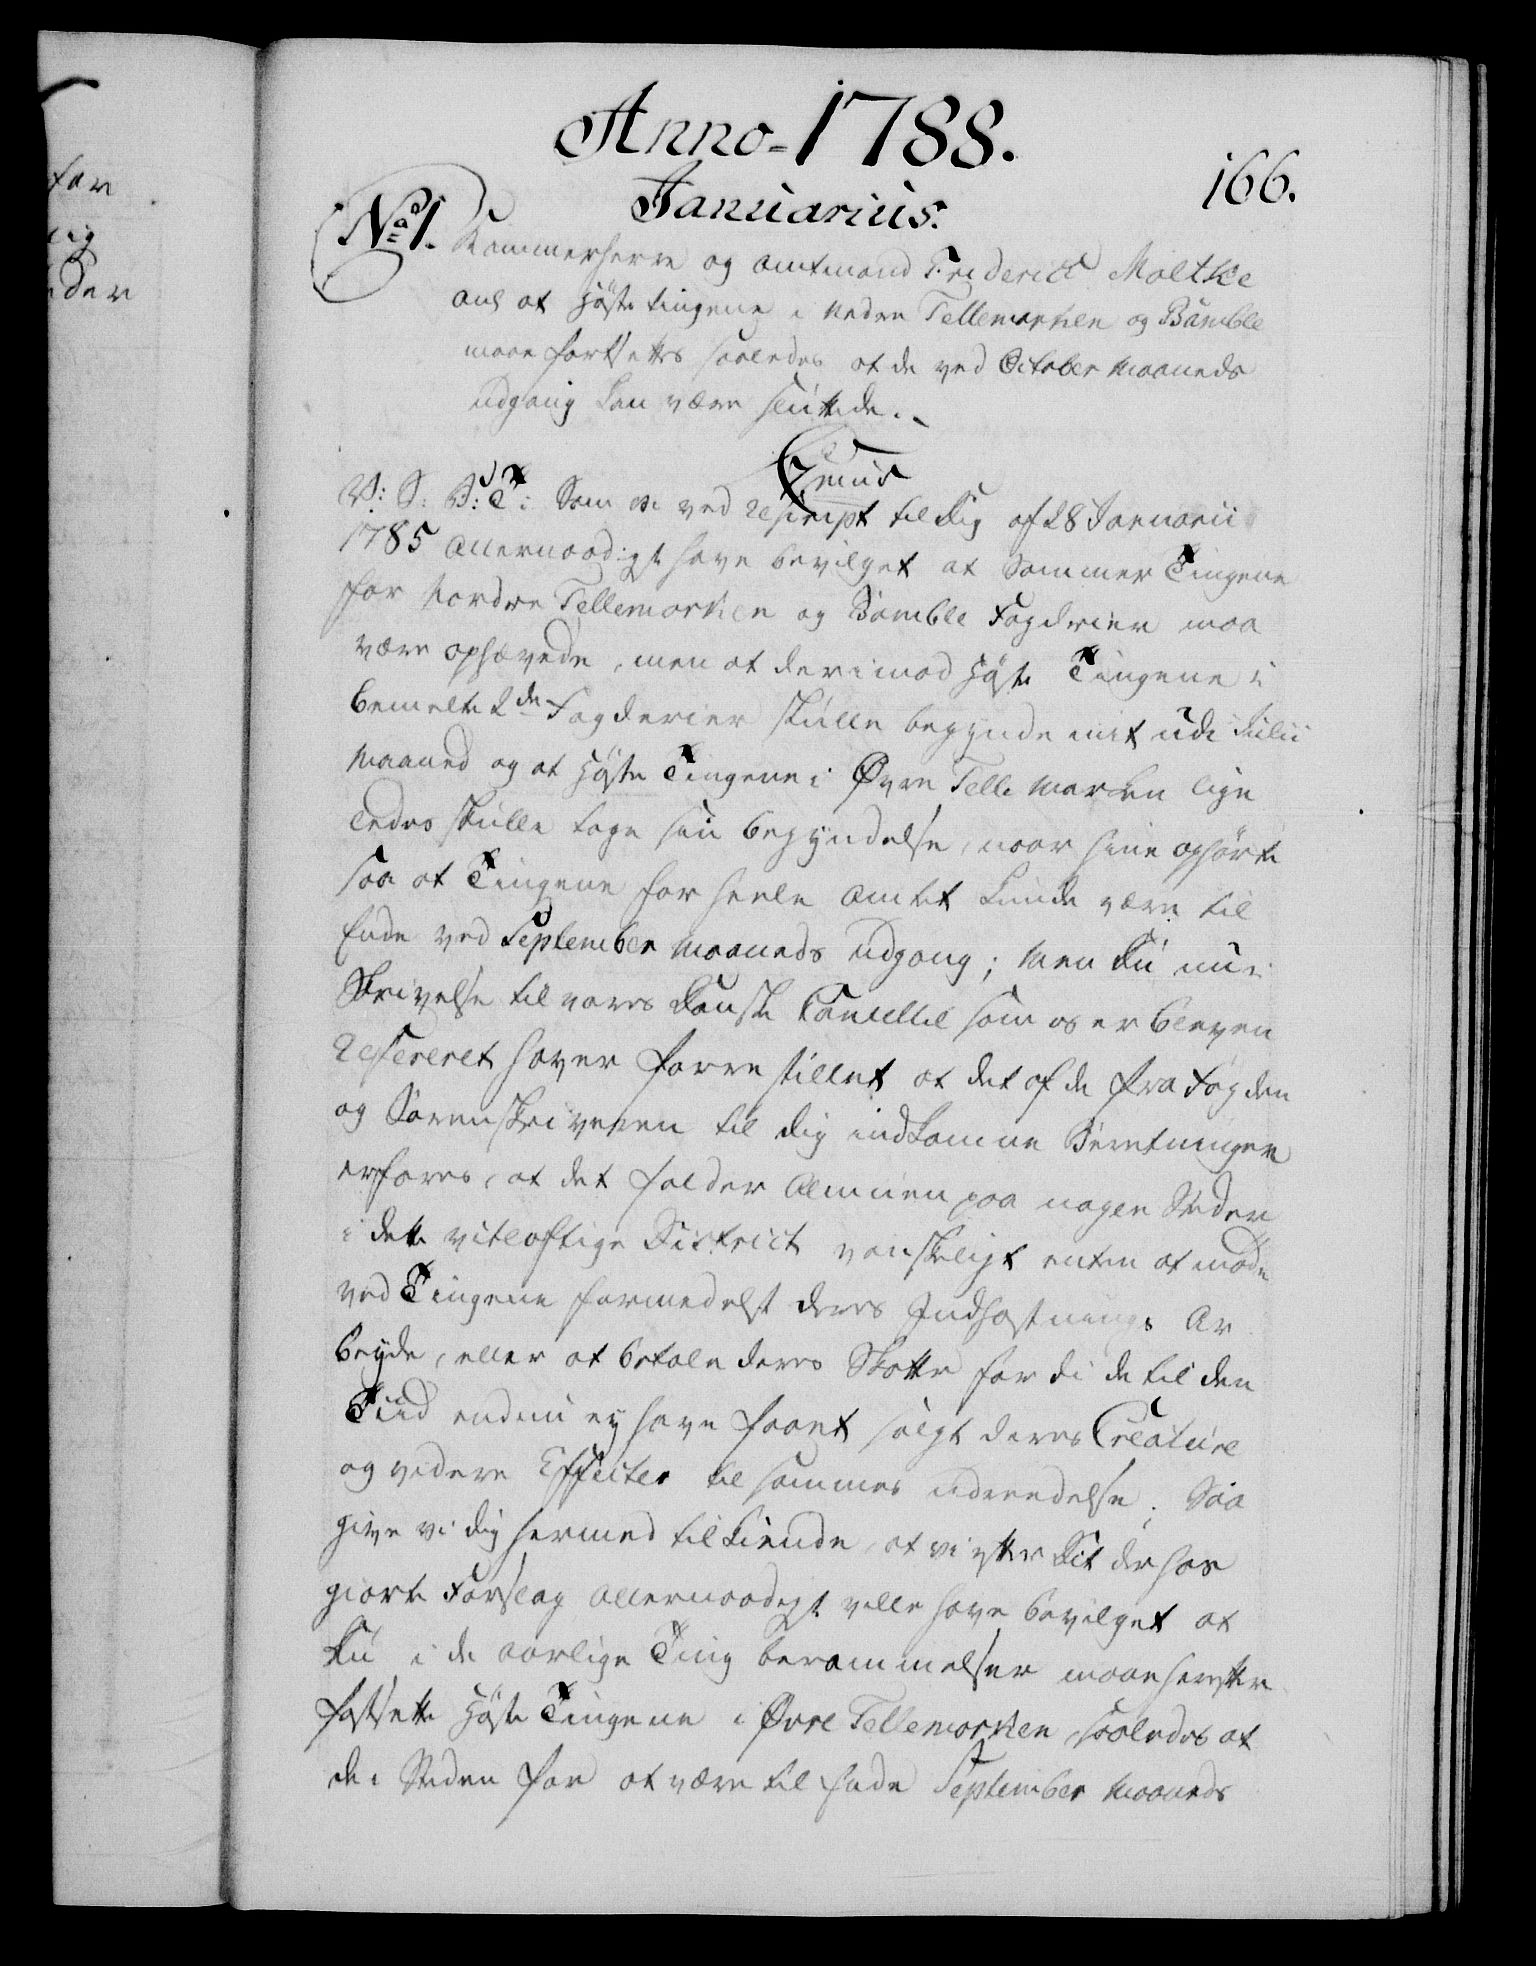 Anno 1788.
166.
Januarius.
No 1.
Kammerherre og amtmand Friderich Moltke
ang at Høste tingene i Nedre Tellemarken og Bamble
maae fortsettes saaledes at de ved October Maaneds
udgang kan være sluttede.
V: S: B: T: Som vi ved rescript til dig af 28 Januarii
1785 allernaadigst have bevilget at Sommer Tingene
for Nordre Tellemarken og Bamble Fogderier maa
være ophævede, men at derimod Høste Tingene i
bemelte 2de Fogderier skulle begynde midt udi Julii
Maaned og at Høste Tingene i Øvre Tellemarken lige
ledes skulle tage sin begyndelse, naar hine ophørte
saa at Tingene for heele Amtet kunde være til
Ende ved September Maaneds udgang; Men du nu i
Skrivelse til vores Danske Cancellie som os er bleven
refereret haver forestillet at det af de fra Fogden
og Sorenskriveren til dig indkomne Beretninger
erfares, at det falder Almuen paa nogen Steder
i dette vitløftige District vanskeligt enten at møde
ved Tingene formedelst deres Indhøstnings Ar
beyde, eller at betale deres Skatter fordi de til den
Tiid endnu ey have faaet solgt deres Creature
og videre Effecter til sammes udreedelse; Saa
give vi dig hermed tilkiende, at vi efter dit derhos
giorte Forslag allernaadigst ville have bevilget at
du i de aarlige Ting berammelser maae herefter
fastsette Høste Tingene i Øvre Tellemarken saaledes at
de i Steden for at være til Ende September Maaneds